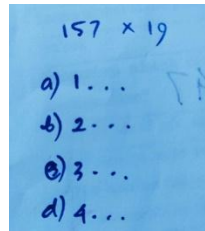 157 × 19
a) 1...
b) 2...
c) 3...
d) 4...